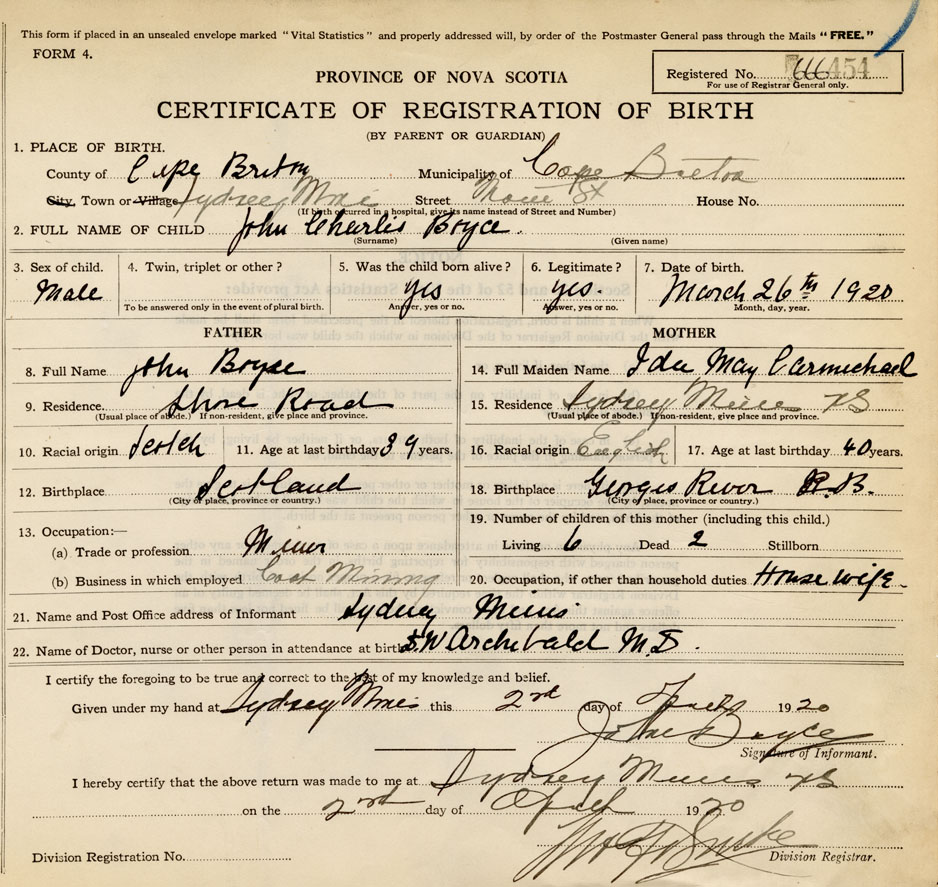 This form if placed in an unsealed envelope marked "Vital Statistics" and properly addressed will, by order of the Postmaster General pass through the Mails "FREE."
FORM 4.
PROVINCE OF NOVA SCOTIA
Registered No. 666454
For use of Registrar General only.
CERTIFICATE OF REGISTRATION OF BIRTH
(BY PARENT OR GUARDIAN)
1. PLACE OF BIRTH.
County of Cape Briton Municipality of Cape Breton
City, Town or Village Sydney Mines Street Main St House No.
(If birth occurred in a hospital, give its name instead of Street and Number)
2. FULL NAME OF CHILD John Charlis Boyce.
(Surname) (Given name)
3. Sex of child. 4. Twin, triplet or other? 5. Was the child born alive? 6. Legitimate? 7. Date of birth.
Male yes yes March 26th 1920
To be answered only in the event of plural birth. Answer, yes or no. Answer, yes or no. Month, day, year.
FATHER MOTHER
8. Full Name John Boyce 14. Full Maiden Name Ida May Carmichael
9. Residence. Shore Road 15. Residence Sydney Mines NS
(Usual place of abode.) If non-resident, give place and province. (Usual place of abode.) If non-resident, give place and province.
10. Racial origin Scotch 11. Age at last birthday 39 years. 16. Racial origin English 17. Age at last birthday 40 years.
12. Birthplace Scotland 18. Birthplace Georges River
(City or place, province or country.) (City or place, province or country.)
13. Occupation:— 19. Number of children of this mother (including this child.)
(a) Trade or profession Miner Living 6 Dead 2 Stillborn
(b) Business in which employed Coal Mining 20. Occupation, if other than household duties House wife.
21. Name and Post Office address of Informant Sydney Mines
22. Name of Doctor, nurse or other person in attendance at birth Archibald M.D.
I certify the foregoing to be true and correct to the best of my knowledge and belief.
Given under my hand at Sydney Mines this 2nd day of April 1920
John Boyce
Signature of Informant.
I hereby certify that the above return was made to me at Sydney Mines NS
on the 2nd day of April 1920
Division Registration No. Division Registrar.